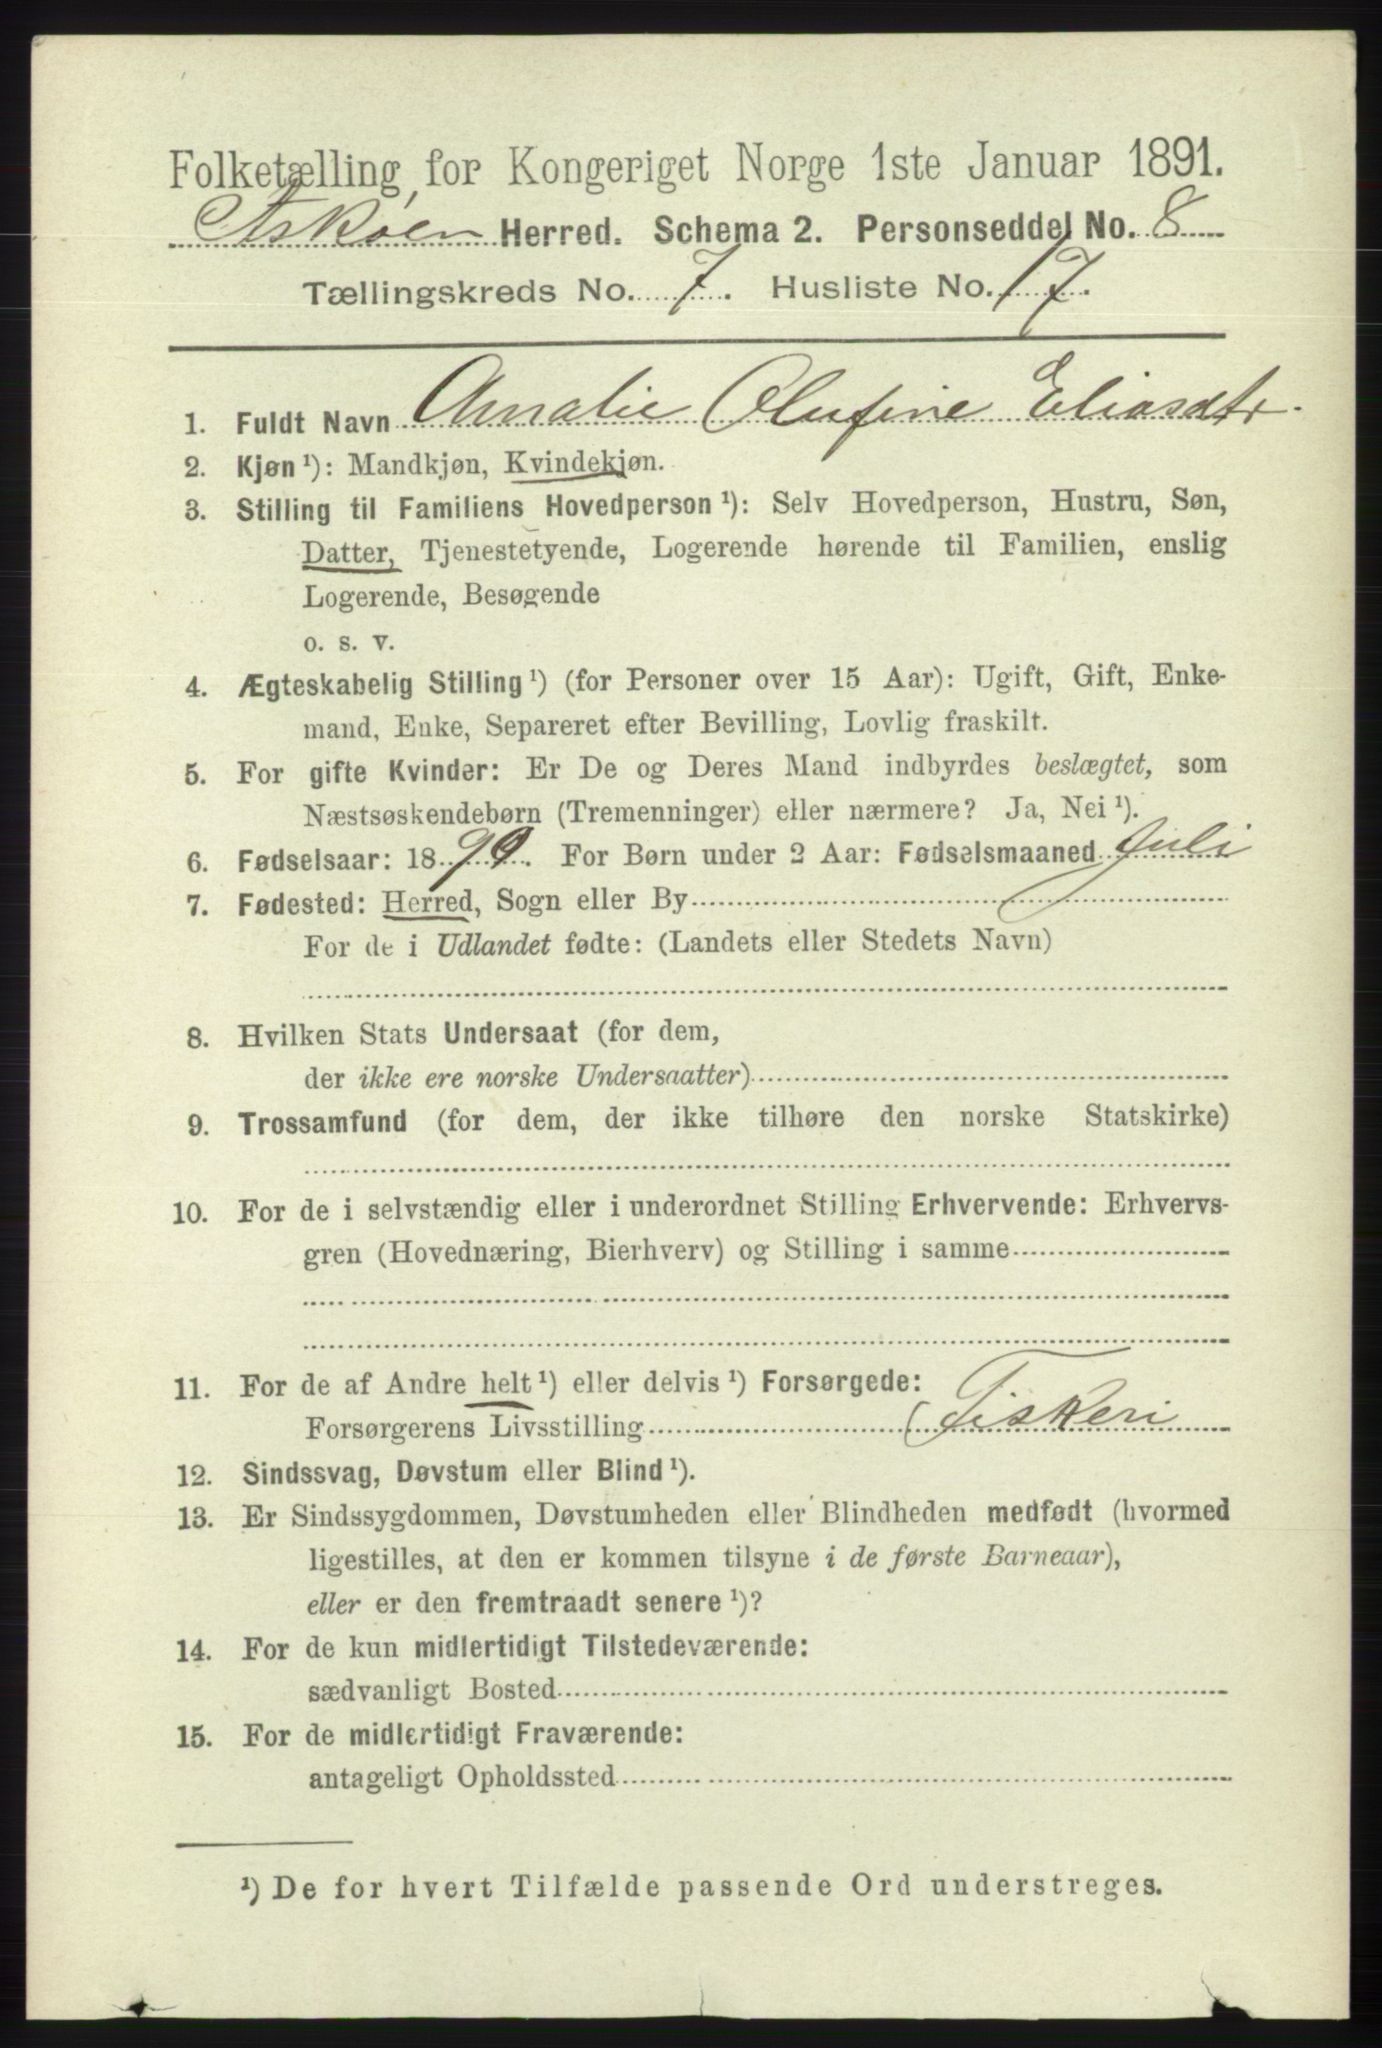 Folketælling for Kongeriget Norge 1ste Januar 1891.
Askøen Herred. Schema 2. Personseddel No. 8
Tællingskreds No. 7. Husliste No. 17.
1. Fuldt Navn Amalie Olufine Eliasdtr.
2. Kjøn ¹): Mandkjøn, Kvindekjøn.
3. Stilling til Familiens Hovedperson ¹): Selv Hovedperson, Hustru, Søn,
Datter, Tjenestetyende, Logerende hørende til Familien, enslig
Logerende, Besøgende
o. s. v.
4. Ægteskabelig Stilling ¹) (for Personer over 15 Aar): Ugift, Gift, Enke-
mand, Enke, Separeret efter Bevilling, Lovlig fraskilt.
5. For gifte Kvinder: Er De og Deres Mand indbyrdes beslægtet, som
Næstsøskendebørn (Tremenninger) eller nærmere? Ja, Nei ¹).
6. Fødselsaar: 1890. For Børn under 2 Aar: Fødselsmaaned Juli
7. Fødested: Herred, Sogn eller By
For de i Udlandet fødte: (Landets eller Stedets Navn)
8. Hvilken Stats Undersaat (for dem,
der ikke ere norske Undersaatter)
9. Trossamfund (for dem, der ikke tilhøre den norske Statskirke)
10. For de i selvstændig eller i underordnet Stilling Erhvervende: Erhvervs-
gren (Hovednæring, Bierhverv) og Stilling i samme
11. For de af Andre helt ¹) eller delvis ¹) Forsørgede:
Forsørgerens Livsstilling Fiskeri
12. Sindssvag, Døvstum eller Blind ¹).
13. Er Sindssygdommen, Døvstumheden eller Blindheden medfødt (hvormed
ligestilles, at den er kommen tilsyne i de første Barneaar),
eller er den fremtraadt senere ¹)?
14. For de kun midlertidigt Tilstedeværende:
sædvanligt Bosted
15. For de midlertidigt Fraværende:
antageligt Opholdssted
¹) De for hvert Tilfælde passende Ord understreges.